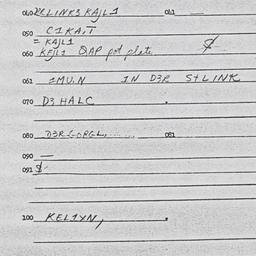 040 RLINKS KAJL1 041 —
050 C1KA,T
= KAJL1
060 KEJL1 QAP pot plate $
061 1MU.N IN D3R StLINK
070 D3 HALC .
080 D3R 081
090 —
091 $
100 KEL1YN,